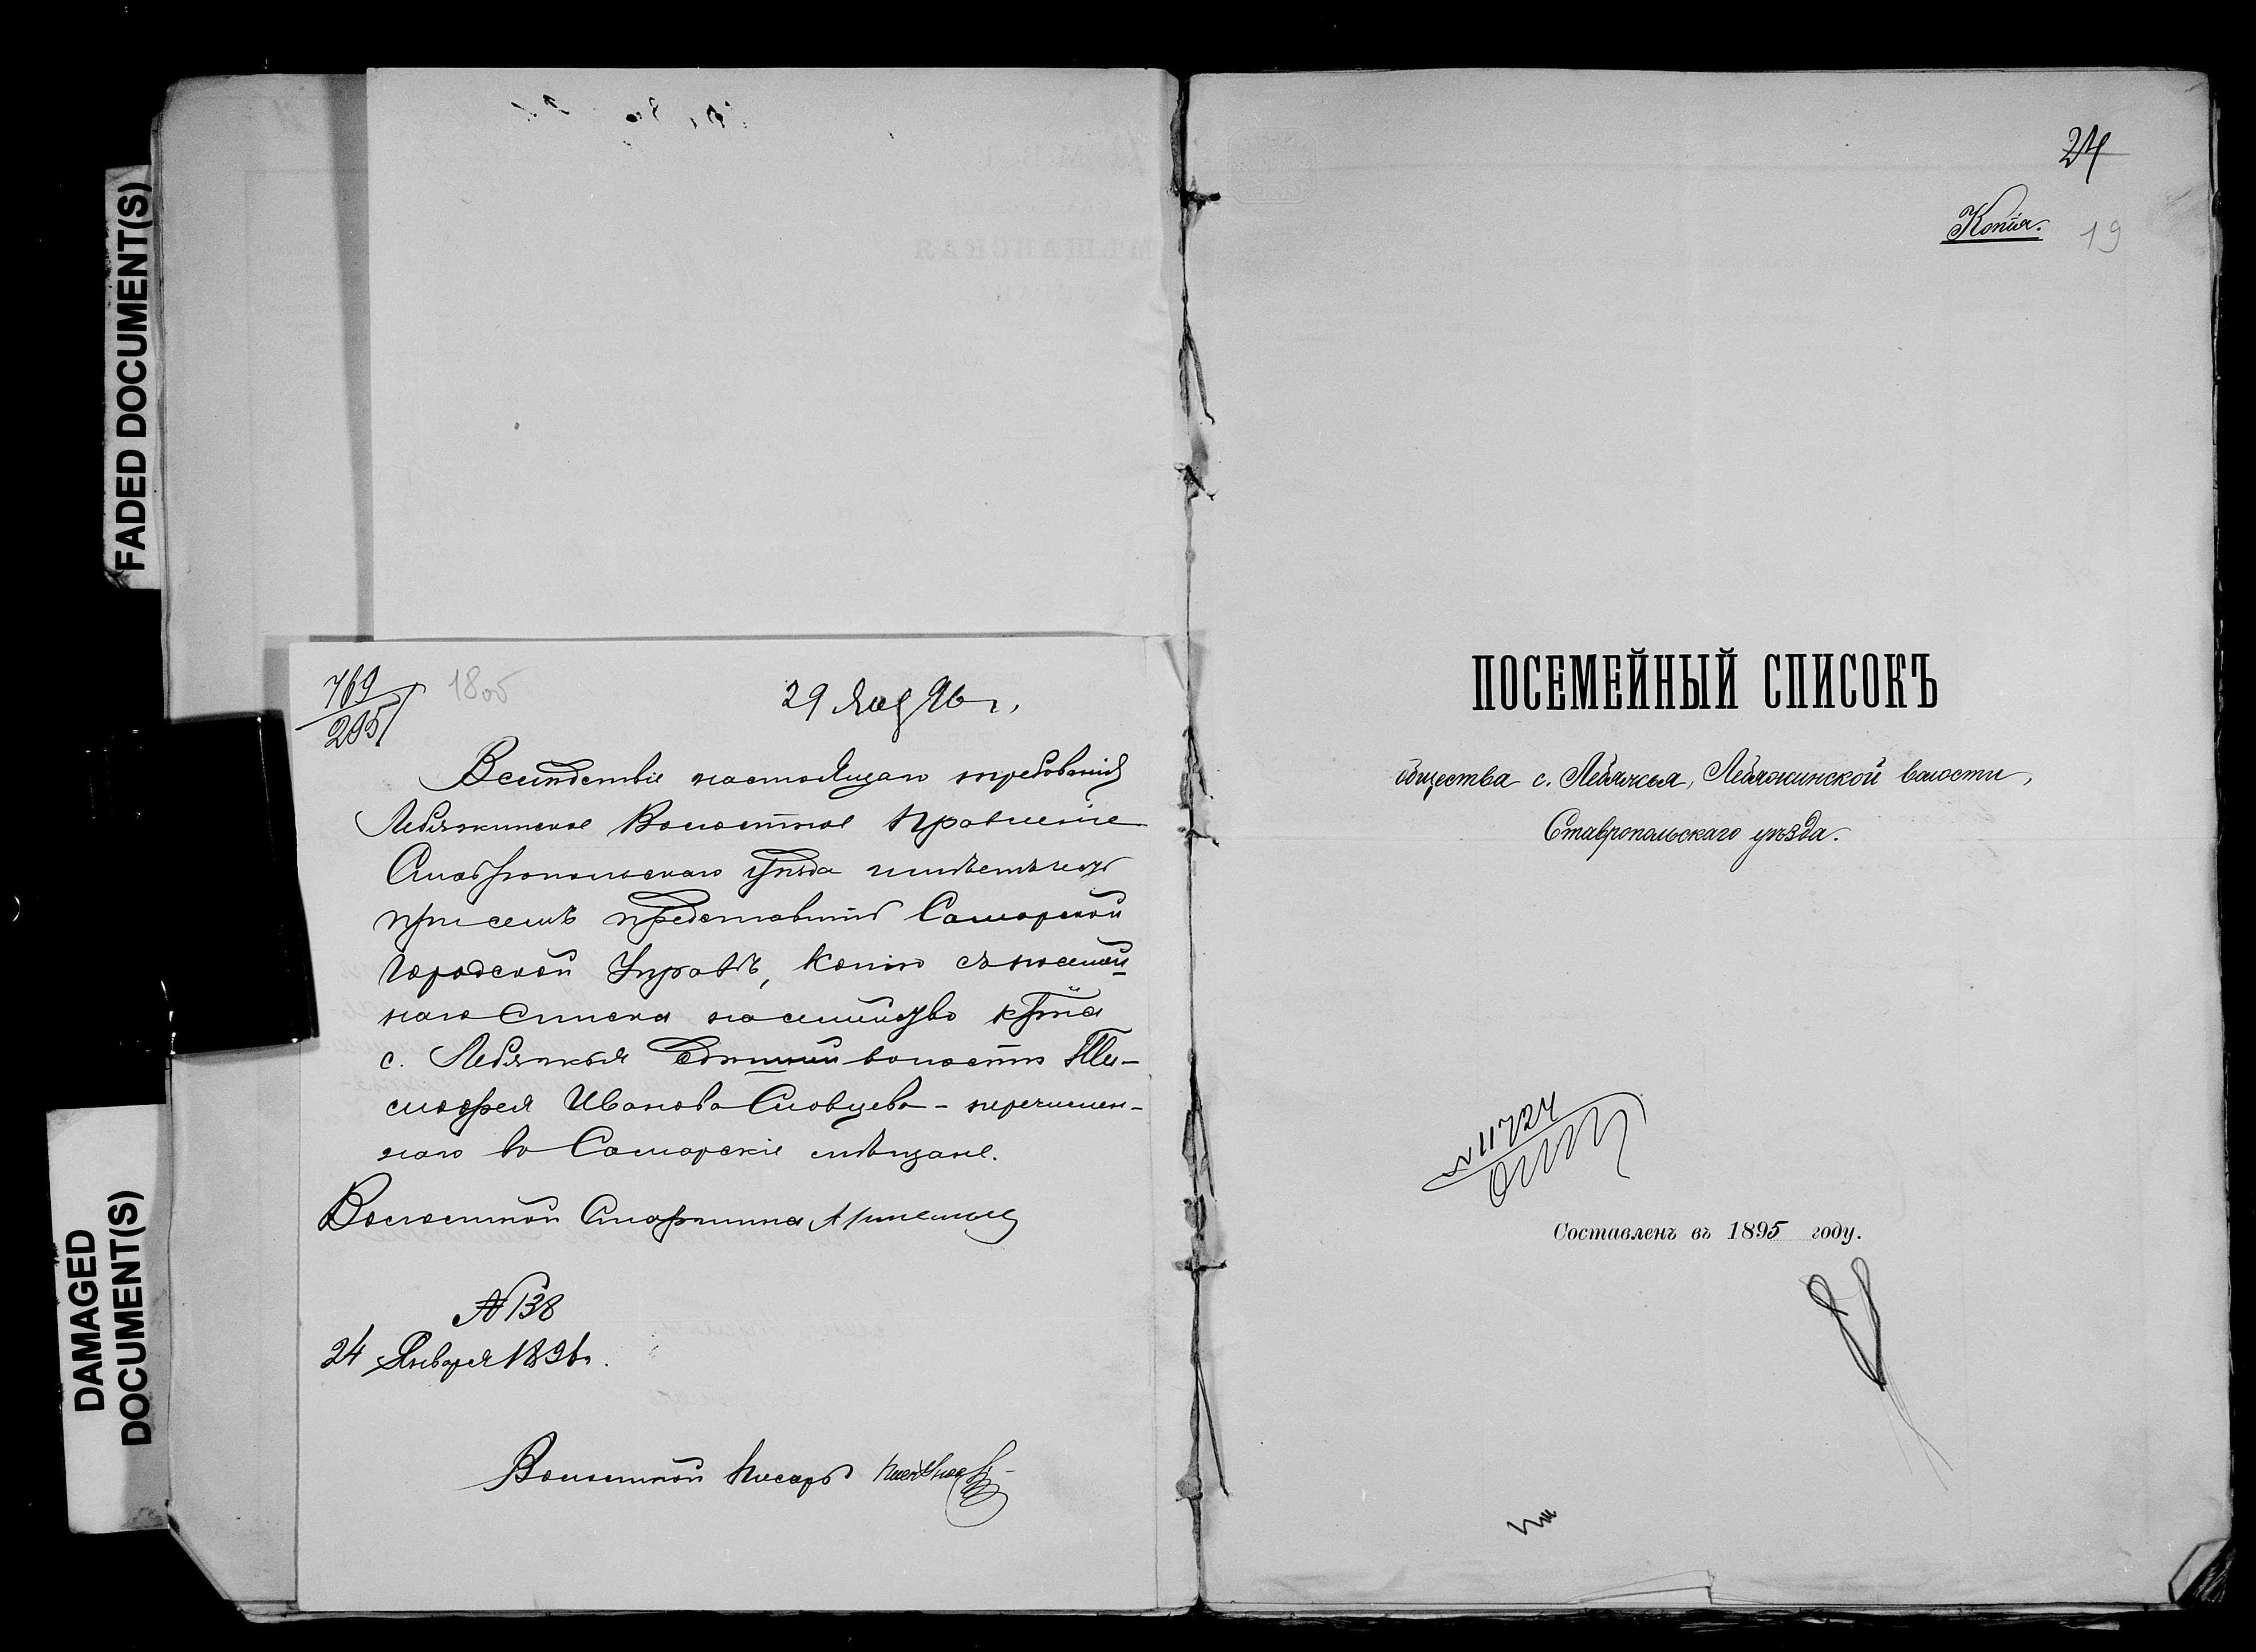 FADED DOCUMENT(S)
DAMAGED
DOCUMENT(S)
769
295
1805
29 Янв 96 г.
Вслѣдствіе настоящаго требованія
Лебяжинское Волостное Правленіе
Ставропольскаго уѣзда имѣетъ честь
при семъ представить Самарской
Городской Управѣ, копію съ посемей-
наго списка на семейство кр-на
с. Лебяжья волости Ти-
мофея Иванова Словцева - перечислен-
наго въ Самарскіе мѣщане.
Волостной Старшина
№ 138
24 Января 1896 г.
Волостной Писарь
24
Копія.
19
ПОСЕМЕЙНЫЙ СПИСОКЪ
общества с. Лебяжья, Лебяжинской волости,
Ставропольскаго уѣзда.
№ 11724
Составленъ въ 1895 году.